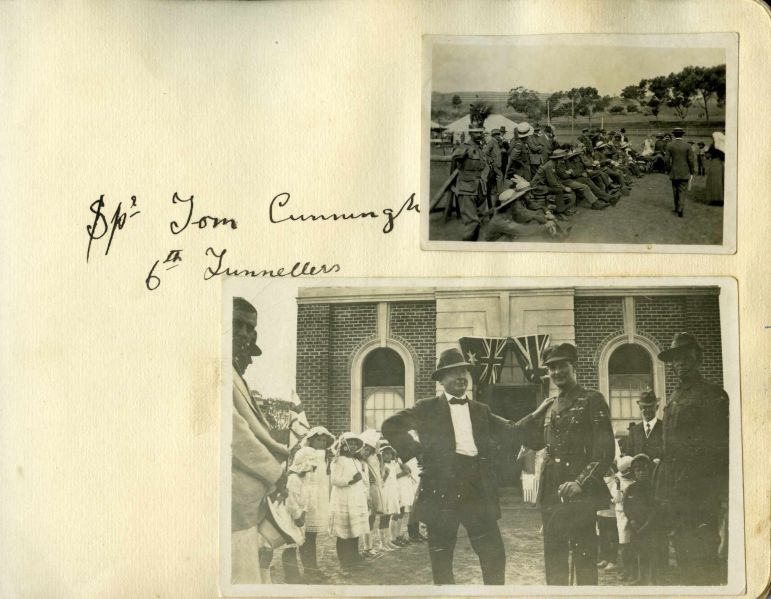 Spr Tom Cunningh
6th Tunnellers